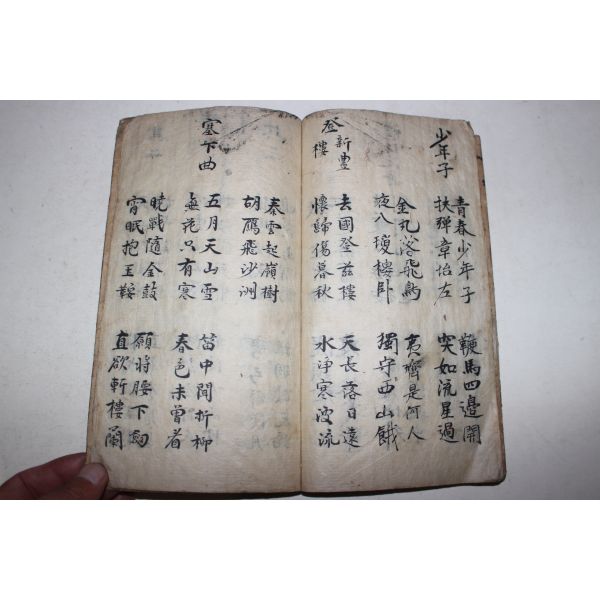 少年子
青春少年子
扶彈章怡左
鞭馬四邊開
突如流星過
金丸落飛鳥
夜入瓊樓臥
夷齊是何人
獨守西山餓
登新豊樓
去國登茲樓
懷歸傷暮秋
天長落日遠
水淨寒波流
秦雲起嶺樹
胡鴈飛沙洲
塞下曲
五月天山雪
無花只有寒
笛中聞折柳
春色未曾看
曉戰隨金鼓
宵眠抱玉鞍
願将腰下劎
直欲斬樓蘭